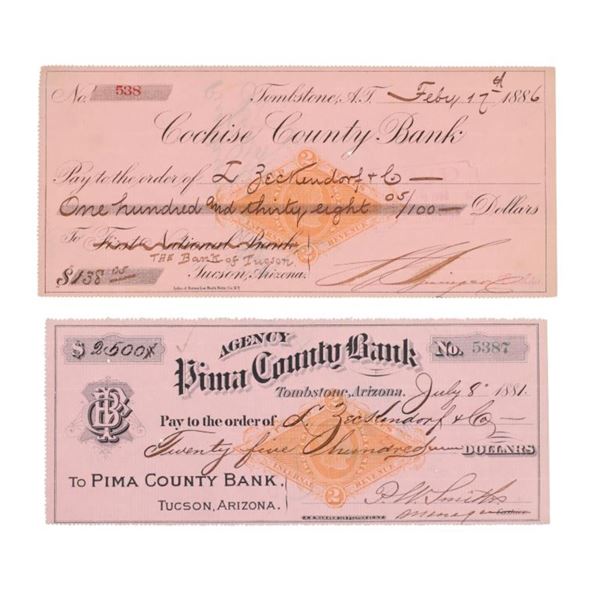 No. 538 Tombstone, A.T. Feby 17th 1886
Cochise County Bank
Pay to the order of L Zeckendorf & Co
One hundred and thirty eight 05/100 Dollars
2
To First National Bank
THE Bank of Tucson
REVENUE
$138 05 Tucson, Arizona.
$2500 AGENCY No. 5387
Pima County Bank
Tombstone, Arizona. July 8 1881.
Pay to the order of L. Zeckendorf & Co
Twenty five hundred DOLLARS
PCB
TO PIMA COUNTY BANK,
INTERNAL REVENUE
2
TUCSON, ARIZONA.
P.W. Smith
manager